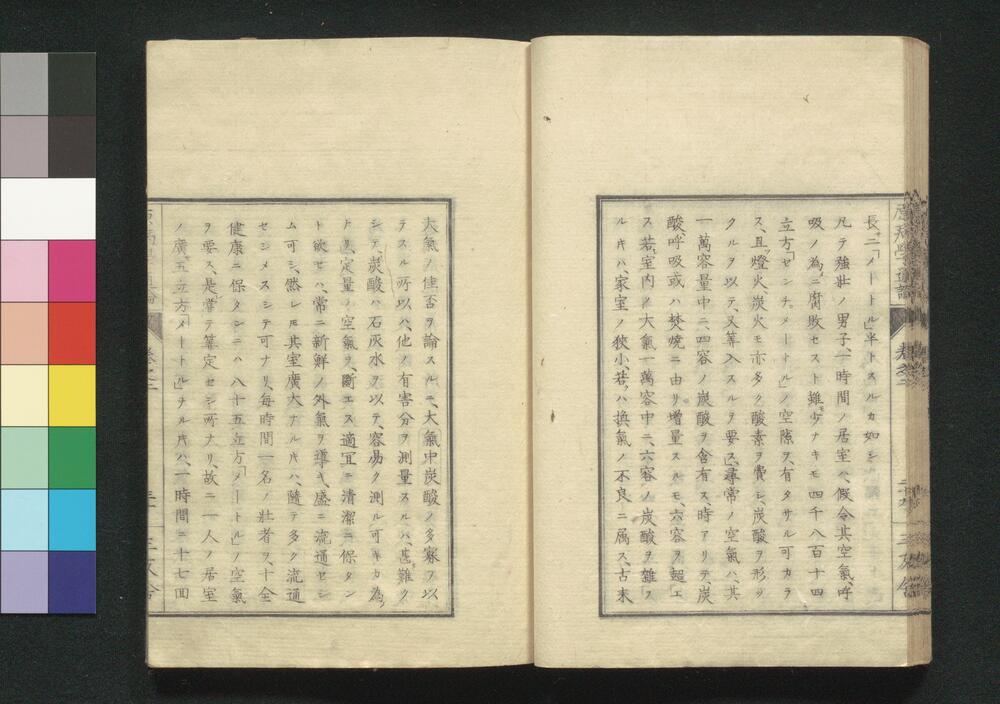 長二「メートル」半トスルカ如シ
凡テ強壯ノ男子、一時間ノ居室ハ、假令其空氣、呼
吸ノ為ニ腐敗セスト雖モ少ナキモ四千八百十四
立方「センチメートル」ノ空隙ヲ有タサル可カラ
ス、且燈火、炭火モ亦多ク酸素ヲ費シ、炭酸ヲ形ツ
クルヲ以テ、又算入スルヲ要ス、尋常ノ空氣ハ、其
一萬容量中ニ、四容ノ炭酸ヲ含有ス、時アリテ、炭
酸、呼吸或ハ焚燒ニ由リ増量スルモ六容ヲ超エ
ス、若シ室内ノ大氣一萬容中ニ、六容ノ炭酸ヲ雜フ
ル片ハ、家室ノ狹小、若クハ換氣ノ不良ニ属ス、古来
大氣ノ佳否ヲ論スルニ、大氣中炭酸ノ多寡ヲ以
テスル所以ハ、他ノ有害分ヲ測量スルハ、甚難ク
シテ、炭酸ハ石灰水ヲ以テ、容易ク測ル可キカ為
ナリ、定量ノ空氣ヲ、斷エス適宜ニ清潔ニ保タン
ト欲セハ、常ニ新鮮ノ外氣ヲ導キ、盛ニ流通セシ
ム可シ、然レ𪜈其室廣大ナル片ハ、隨テ多ク流通
セシメスシテ可ナリ、毎時間一名ノ壯者ヲ、十全
健康ニ保タンニハ、八十五立方「メートル」ノ空氣
ヲ要ス、是甞テ算定セシ所ナリ、故ニ一人ノ居室
ノ廣、五立方「メートル」ナル片ハ、一時間ニ十七回